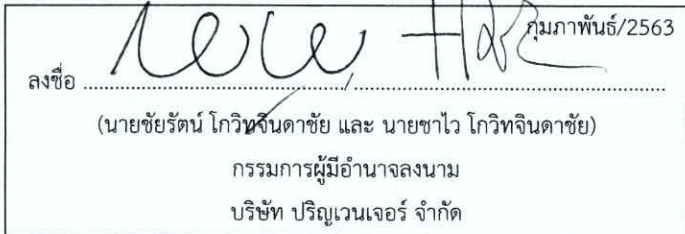 กุมภาพันธ์/2563
ลงชื่อ ......................................../........................................
(นายชัยรัตน์ โกวิทจินดาชัย และ นายชาไว โกวิทจินดาชัย)
กรรมการผู้มีอำนาจลงนาม
บริษัท ปริญเวนเจอร์ จำกัด